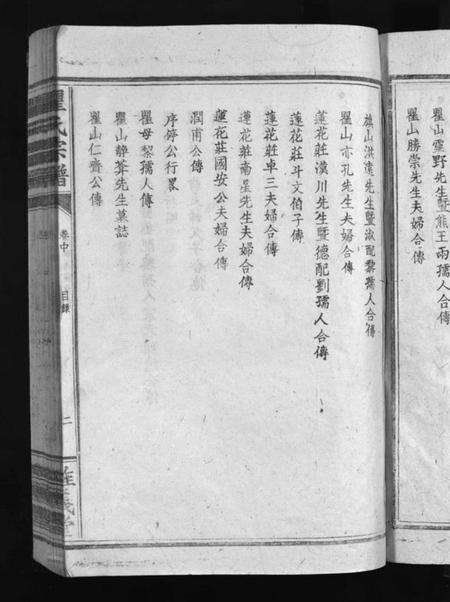 瞿山霞野先生暨熊王兩孺人合傳
瞿山勝崇先生夫婦合傳
旗山洪遠先生暨淑配黎孺人合傳
瞿山亦孔先生夫婦合傳
蓮花莊漢川先生暨德配劉孺人合傳
蓮花莊斗文伯子傳
蓮花莊卓三夫婦合傳
蓮花莊南星先生夫婦合傳
蓮花莊國安公夫婦合傳
潤甫公傳
序停公行畧
瞿母黎孺人傳
瞿山靜葊先生墓誌
瞿山仁齊公傳
瞿氏宗譜
卷中
目錄
二